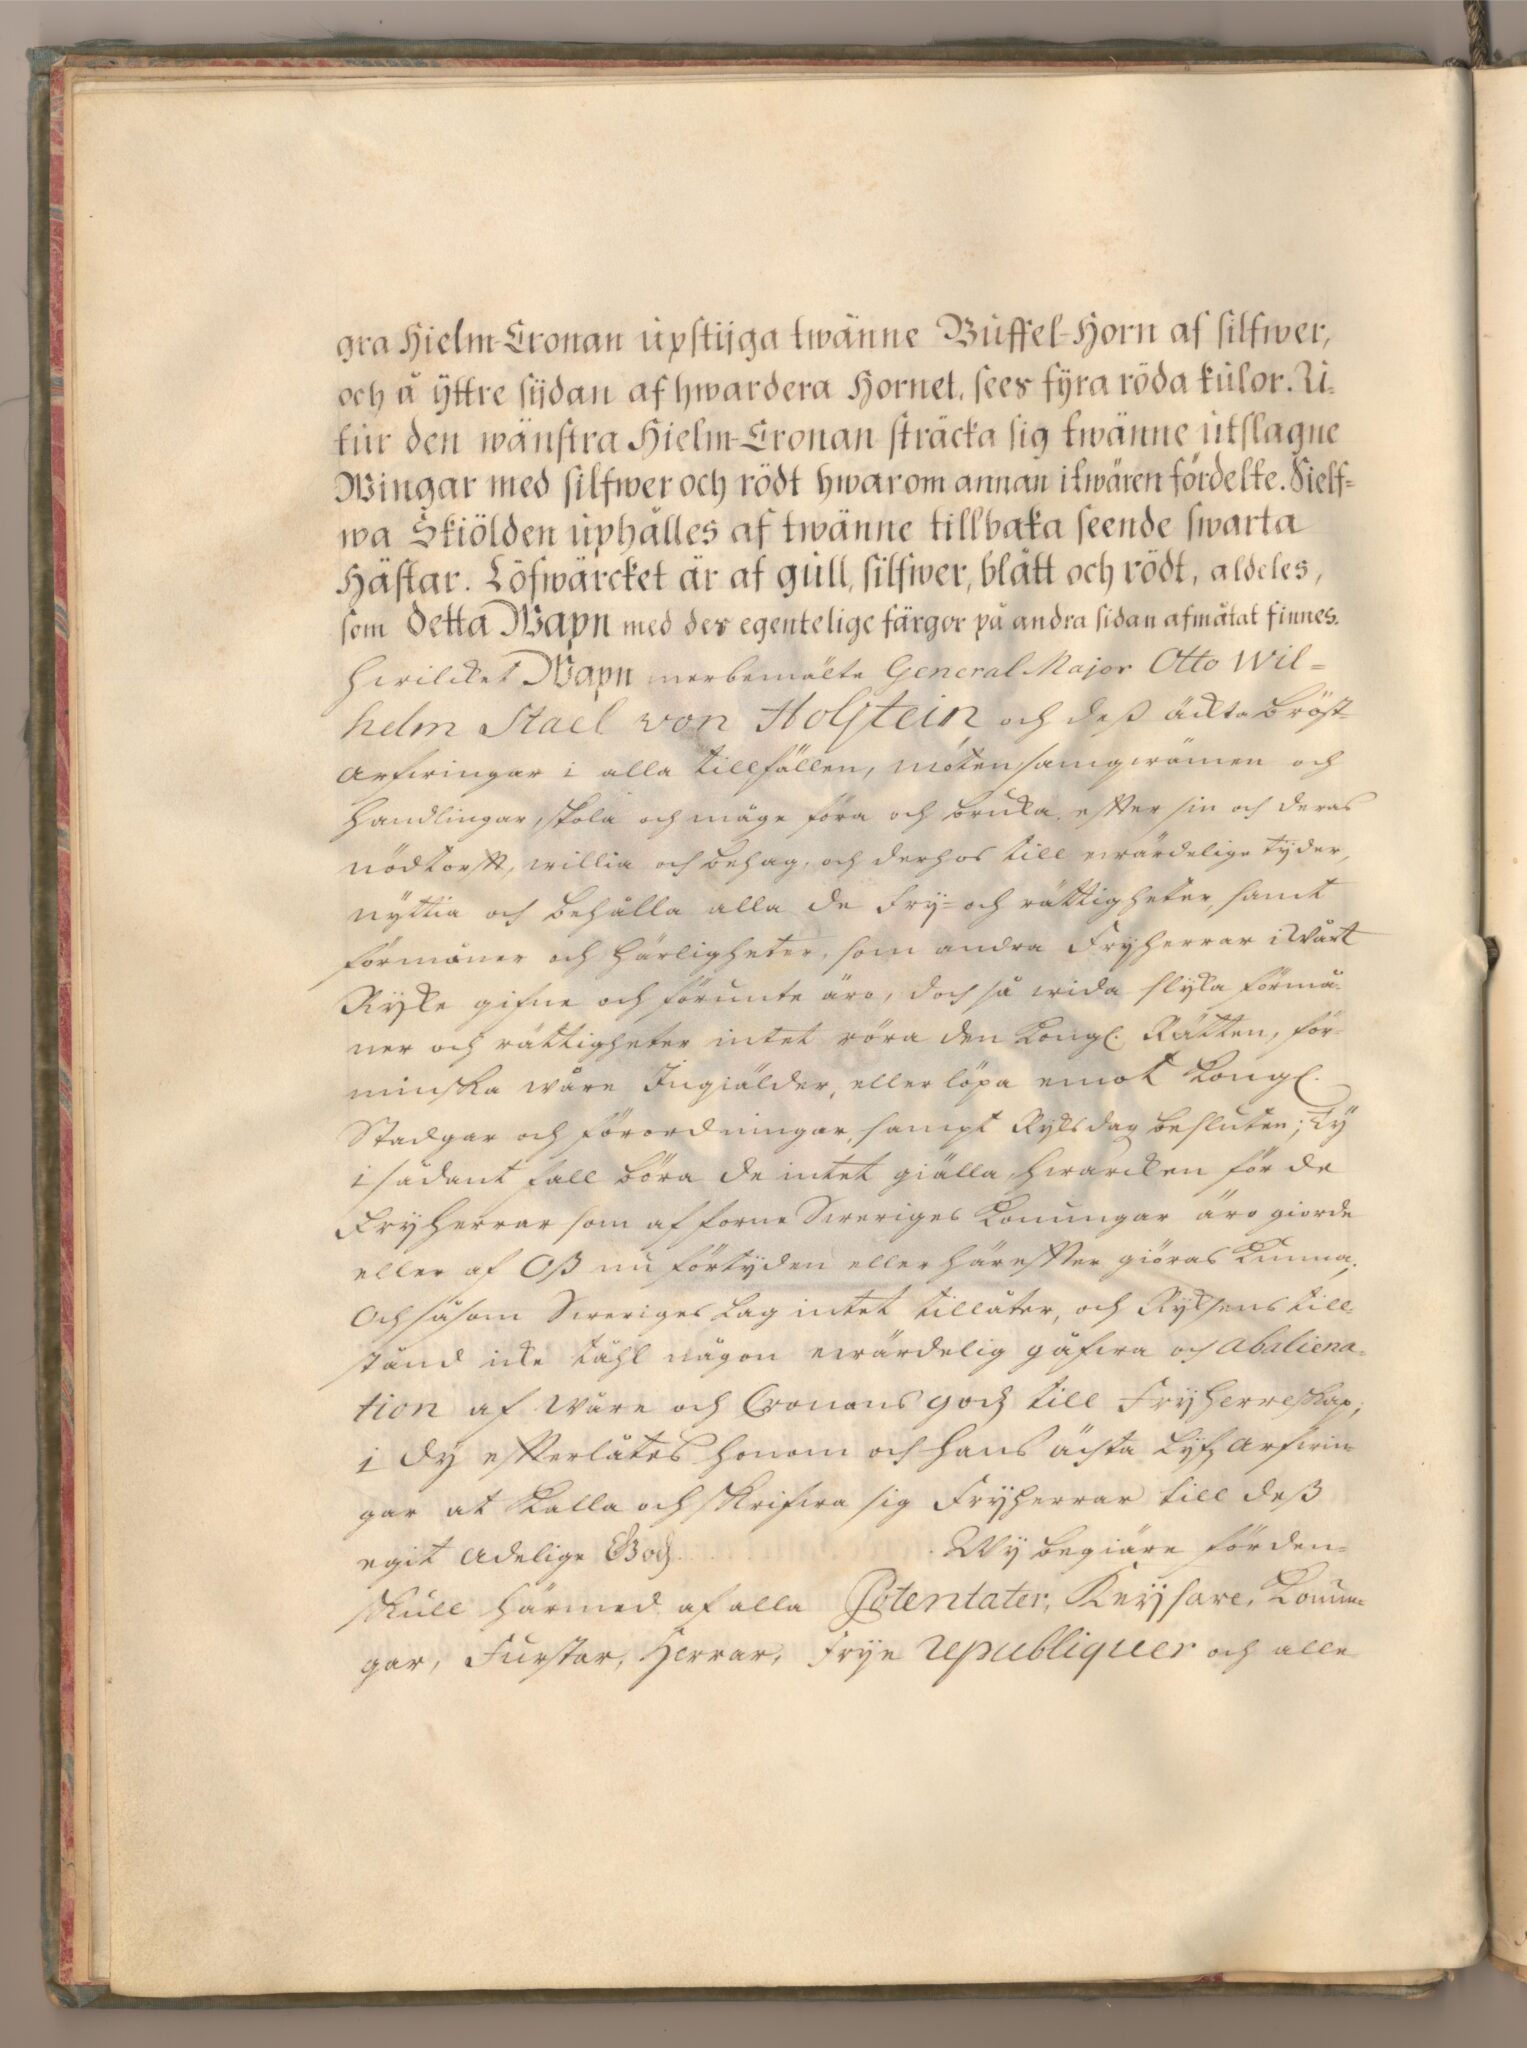 gra Hielm-Cronan upstijga twänne Buffel-Horn af silfwer,
och å ÿttre sijdan af hwardera Hornet, sees fÿra röda kulor. U-
tur den wänstra Hielm-Cronan sträcka sig twänne utslagne
Wingar med silfwer och rödt hwarom annan itwären fördelte. Sielf=
wa Skiölden uphålles af twänne tillbaka seende swarta
Hästar. Löfwärcket är af gull, silfwer, blått och rödt, aldeles,
som detta Wapn med des egentelige färgor på andra sidan afmålat finnes.
Hwilcket Wapn merbemälte General Major Otto Wil=
helm Stael von Holstein och deß ächta Bröst-
Arfwingar i alla tillfällen, möten samqwämen och
Handlingar, skola och måge föra och bruka, efter sin och deras
nödtorft, willia och behag, och derhos till ewärdelige tyder,
nyttia och behålla alla de Fry- och rättigheter, samt
förmåner och Härligheter, som andra Fryherrar i Wårt
Ryke gifne och förunte äro, doch så wida slyka förmå-
ner och rättigheter intet röra den Kongl. Rätten, för-
minska wåre Ingiälder, eller löpa emot Kongl.
Stadgar och förordningar, sampt Ryksdag besluten; Ty
i sådant fall böra de intet giälla, hwarcken för de
Fryherrar som af forne Sweriges Konungar äro giorde
eller af Oß nu förtyden eller härefter giöras kunna;
Och såsom Sweriges Lag intet tillåter, och Ryksens till-
stånd icke tåhl någon ewärdelig gåfwa och Abaliena-
tion af Wåre och Cronans godz till Fryherreskap;
i dy efterlåtes honom och hans ächta Lyfz Arfwin-
gar at kalla och skrifwa sig Fryherrar till deß
egit Adelige Godz. Wy begiäre förden-
skull härmed af alla Potentater, Keysare, Konun-
gar, Furstar, Herrar, Frye republiquer och alle